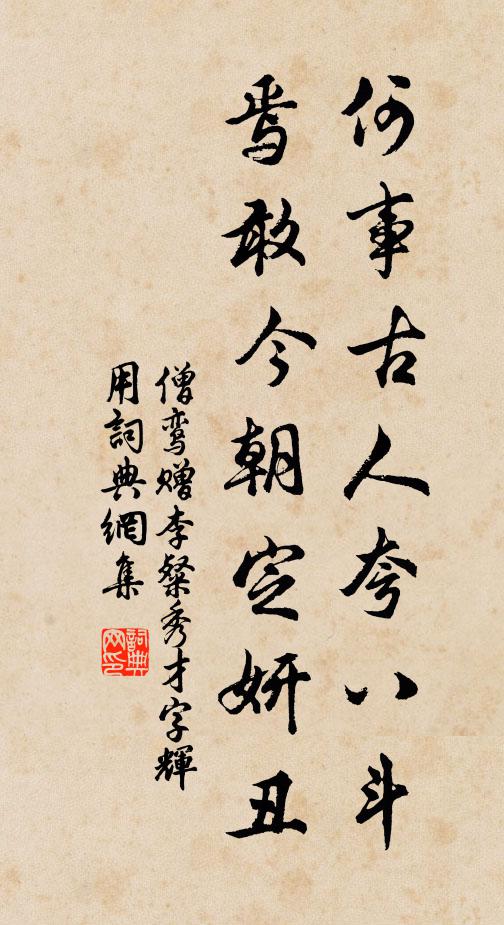 何事古人夸八斗
焉敢今朝定妍丑
僧鸾赠李粲秀才字輝
用詞典網集
詞典网印